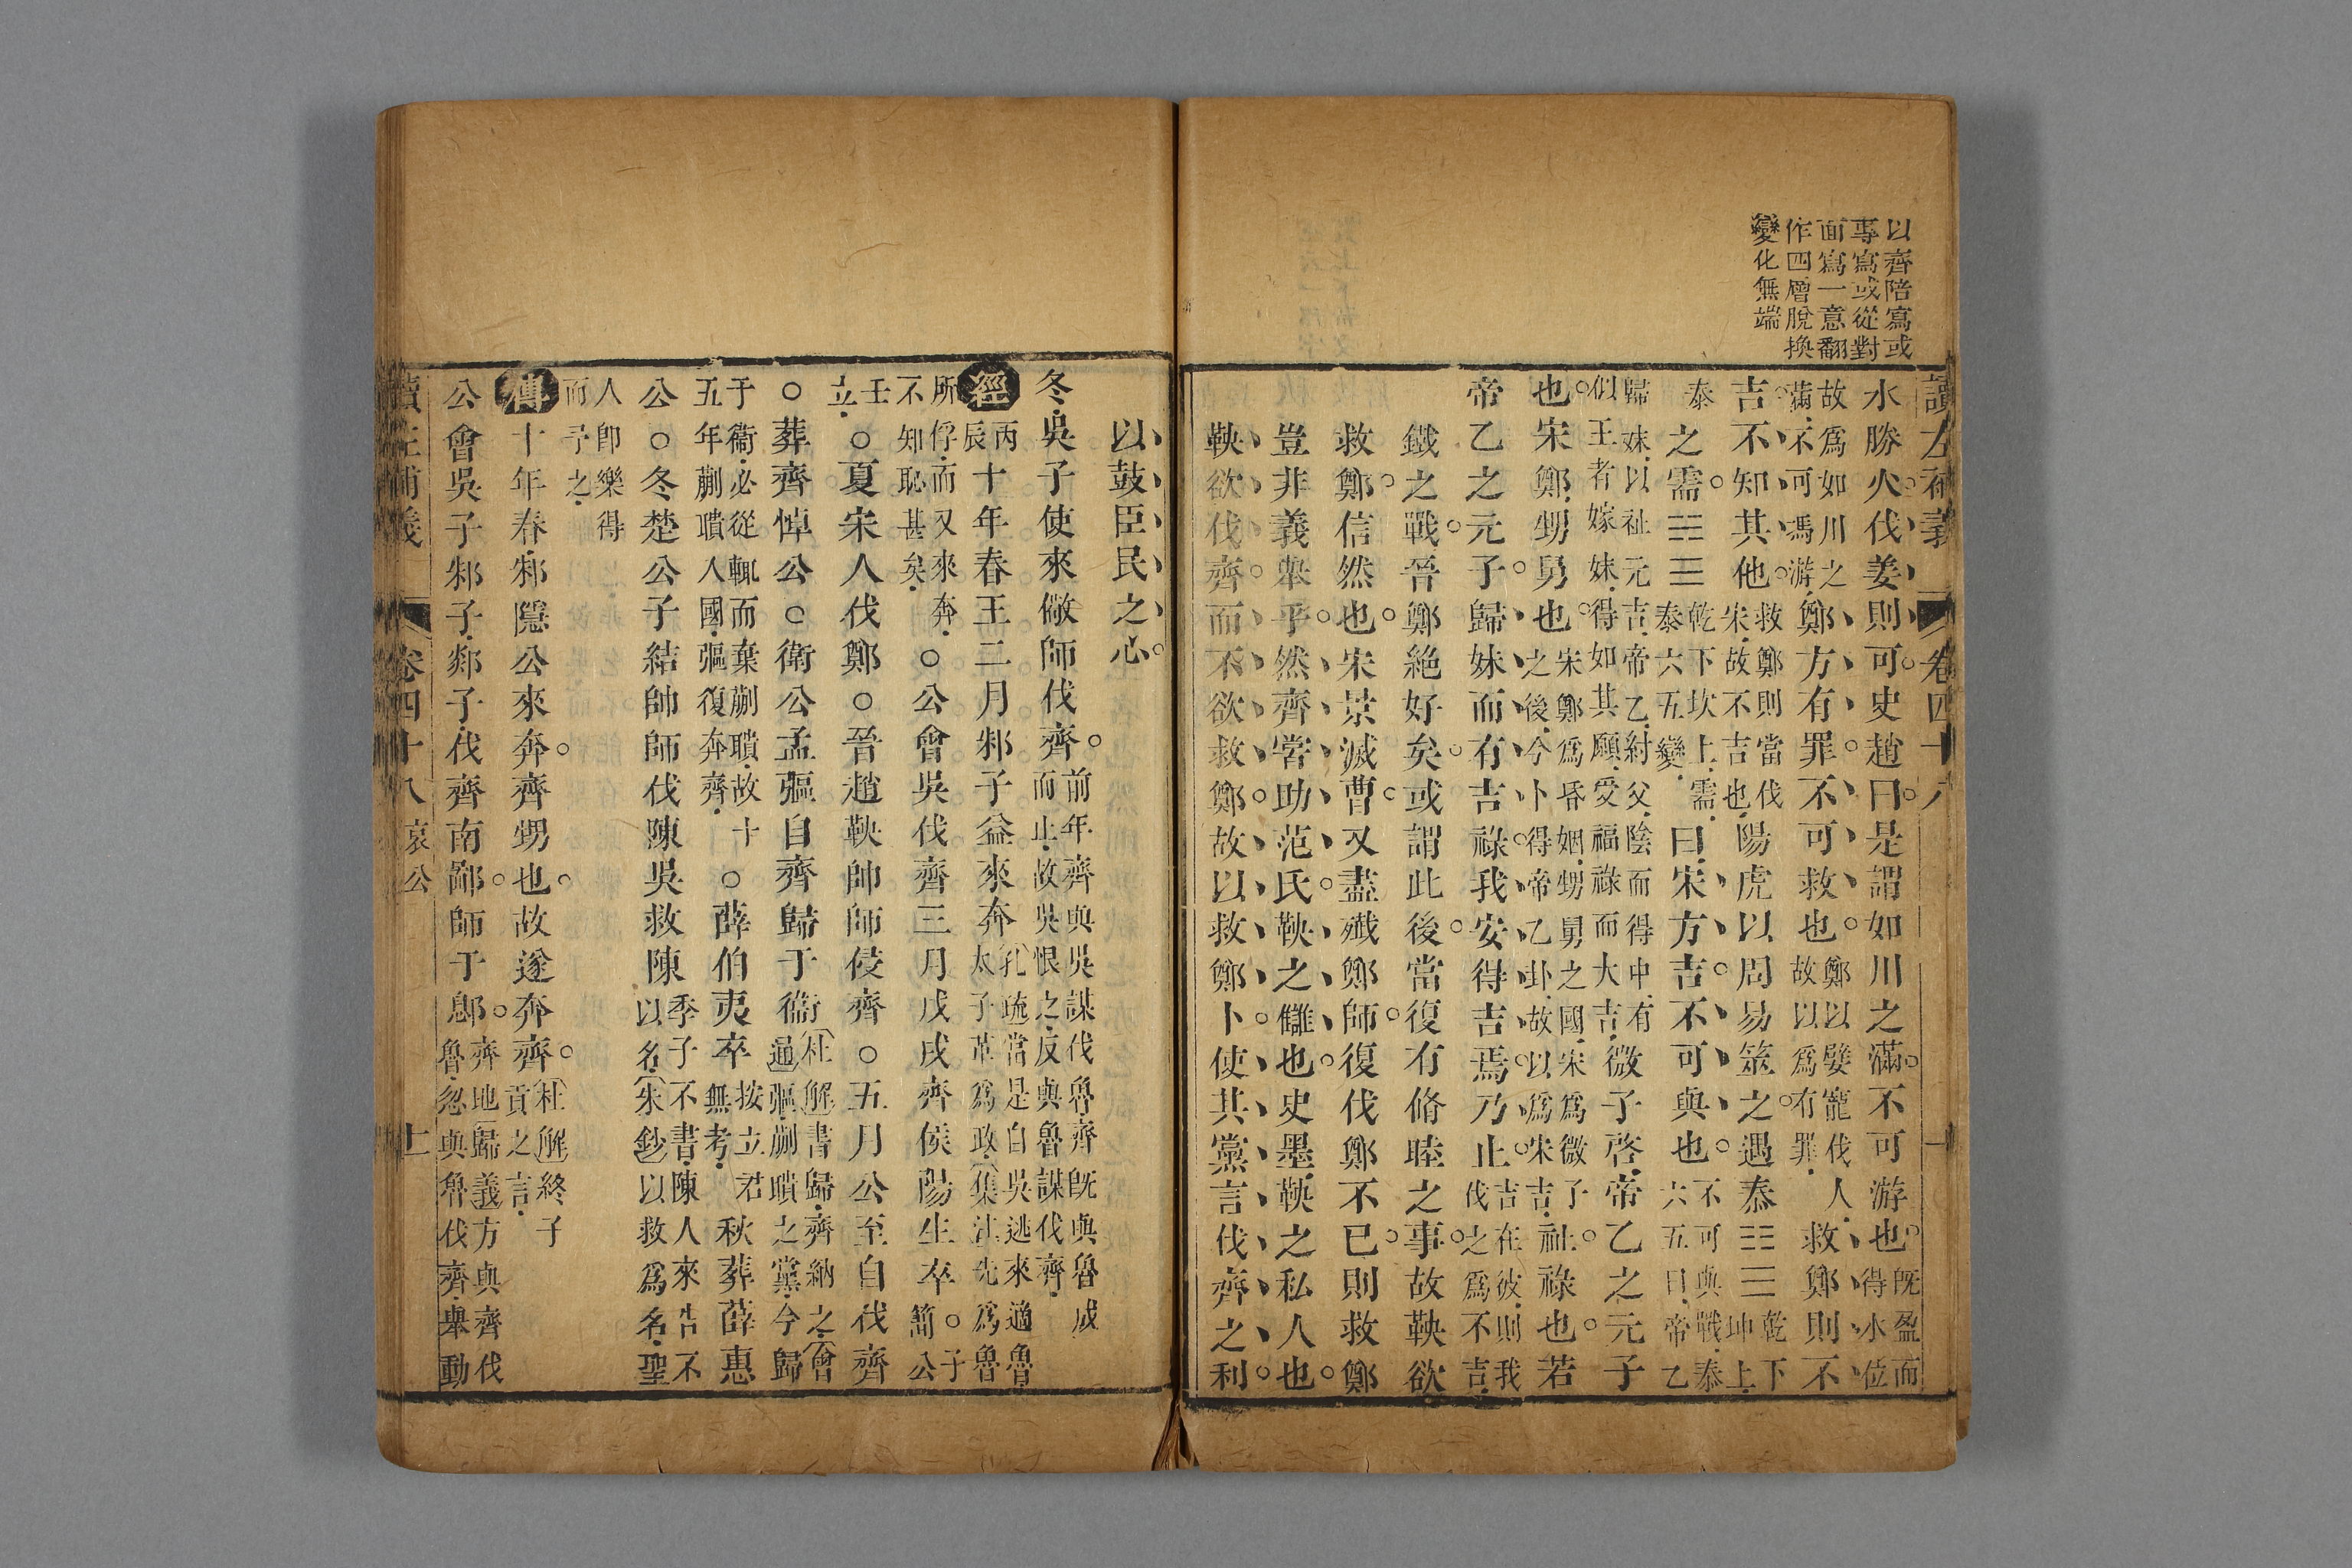 以齊陪寫或
專寫或從對
面寫一意翻
作四層脫換
變化無端
讀左補義 卷四十八
水勝火伐姜則可史趙曰是謂如川之滿不可游也既盈而得水位
故爲如川之滿不可馮游鄭方有罪不可救也鄭以嬖寵伐人故以爲有罪救鄭則不
吉不知其他救鄭則當伐宋故不吉也陽虎以周易筮之遇泰☷☰乾下坤上
泰之需☵☰乾下坎上需泰六五變曰宋方吉不可與也不可與戰泰六五曰帝乙
歸妹以祉元吉帝乙紂父陰而得中有似王者嫁妹得如其願受福祿而大吉微子啓帝乙之元子
也宋鄭甥舅也宋鄭爲昏姻甥舅之國宋爲微子之後今卜得帝乙卦故以爲宋吉祉祿也若
帝乙之元子歸妹而有吉祿我安得吉焉乃止吉在彼則我伐之爲不吉
鐵之戰吾鄭絕好矣或謂此後當復有脩睦之事故鞅欲
救鄭信然也宋景滅曹又盡殲鄭師復伐鄭不已則救鄭
豈非義舉乎然齊嘗助范氏鞅之讎也史墨鞅之私人也
鞅欲伐齊而不欲救鄭故以救鄭卜使其黨言伐齊之利
以鼓臣民之心
冬吳子使來儆師伐齊前年齊與吳謀伐魯齊既與魯成而止故吳恨之反與魯謀伐齊
經丙辰十年春王二月邾子益來奔孔疏當是自吳逃來適魯太子革爲政集註先爲魯
所俘而又來奔不知恥甚矣○公會吳伐齊三月戊戌齊侯陽生卒○子簡公
壬立○夏宋人伐鄭○晉趙鞅帥師侵齊○五月公至自伐齊
○葬齊悼公○衛公孟彄自齊歸于衞杜解書歸齊納之會通彄蒯聵之黨今歸
于衞必從輒而棄蒯聵故十五年蒯聵入國彄復奔齊○薛伯夷卒按立君無考秋葬薛惠
公○冬楚公子結帥師伐陳吳救陳季子不書陳人來告不以名朱鈔以救爲名聖
人卽樂得而予之
傳十年春邾隱公來奔齊甥也故遂奔齊杜解終子貢之言
公會吳子邾子郯子伐齊南鄙師于鄎齊地歸義方與齊伐魯忽與魯伐齊舉動
讀左補義 卷四十八 哀公 十一